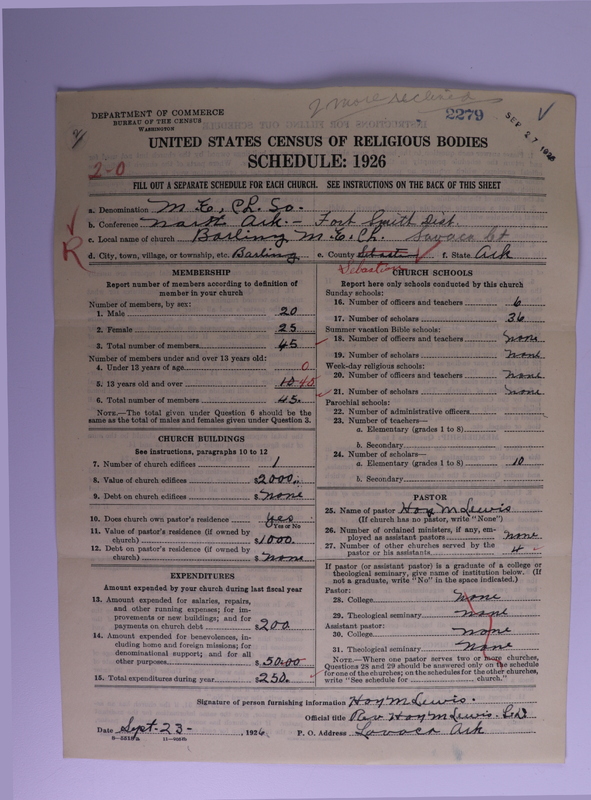 2 more received
DEPARTMENT OF COMMERCE
BUREAU OF THE CENSUS
WASHINGTON
2279
SEP 27 1926
UNITED STATES CENSUS OF RELIGIOUS BODIES
SCHEDULE: 1926
2-0
FILL OUT A SEPARATE SCHEDULE FOR EACH CHURCH. SEE INSTRUCTIONS ON THE BACK OF THIS SHEET
a. Denomination M. E. Ch. So.
b. Conference North Ark. – Fort Smith Dist.
c. Local name of church Barling M. E. Ch. Lavaca Ct
R
d. City, town, village, or township, etc. Barling e. County Sebastian f. State Ark
Sebastian
MEMBERSHIP
Report number of members according to definition of member in your church
Number of members, by sex:
1. Male 20
2. Female 25
3. Total number of members 45
Number of members under and over 13 years old:
4. Under 13 years of age 0
5. 13 years old and over 10 45
6. Total number of members 45.
NOTE.—The total given under Question 6 should be the
same as the total of males and females given under Question 3.
CHURCH BUILDINGS
See instructions, paragraphs 10 to 12
7. Number of church edifices 1
8. Value of church edifices $2000.
9. Debt on church edifices $none
10. Does church own pastor's residence yes
Yes or No
11. Value of pastor's residence (if owned by
church) $1000.
12. Debt on pastor's residence (if owned by
church) $none
EXPENDITURES
Amount expended by your church during last fiscal year
13. Amount expended for salaries, repairs,
and other running expenses; for im-
provements or new buildings; and for
payments on church debt $200
14. Amount expended for benevolences, in-
cluding home and foreign missions; for
denominational support; and for all
other purposes $50.00
15. Total expenditures during year $250.
CHURCH SCHOOLS
Report here only schools conducted by this church
Sunday schools:
16. Number of officers and teachers 6
17. Number of scholars 36
Summer vacation Bible schools:
18. Number of officers and teachers none
19. Number of scholars none
Week-day religious schools:
20. Number of officers and teachers none
21. Number of scholars none
Parochial schools:
22. Number of administrative officers
23. Number of teachers—
a. Elementary (grades 1 to 8)
b. Secondary
24. Number of scholars—
a. Elementary (grades 1 to 8) 10
b. Secondary
PASTOR
25. Name of pastor Hoy M Lewis
(If church has no pastor, write "None")
26. Number of ordained ministers, if any, em-
ployed as assistant pastors none
27. Number of other churches served by the
pastor or his assistants 4
If pastor (or assistant pastor) is a graduate of a college or
theological seminary, give name of institution below. (If
not a graduate, write "No" in the space indicated.)
Pastor:
28. College none
29. Theological seminary none
Assistant pastor:
30. College none
31. Theological seminary none
NOTE.—Where one pastor serves two or more churches,
Questions 28 and 29 should be answered only on the schedule
for one of the churches; on the schedules for the other churches,
write "See schedule for church."
Signature of person furnishing information Hoy M Lewis.
Official title Rev Hoy M Lewis.
Date Sept-23-, 1926 P. O. Address Lavaca Ark